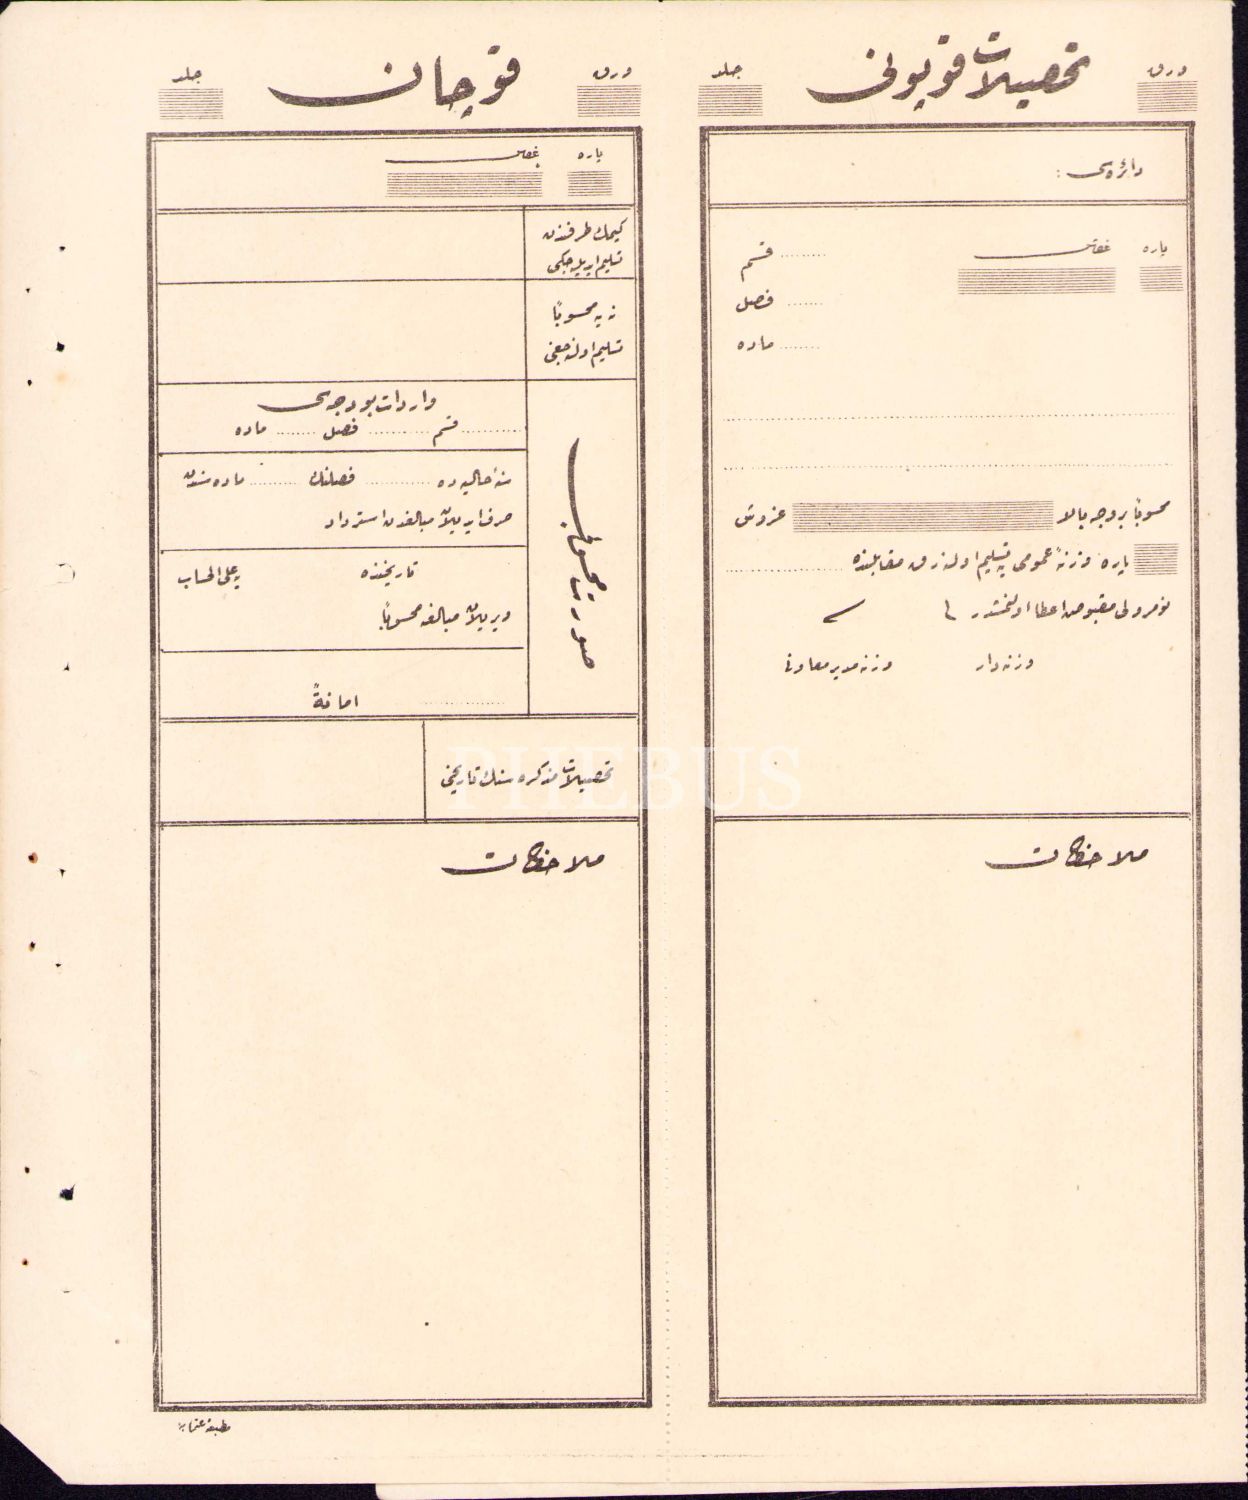 ورق
تحصيلات قوپونى
جلد
دائره‌سى :
پاره
غروش
قسم
فصل
ماده
محسوباً بر وجه بالا
غروش
پاره وزنهٔ عمومى‌يه تسليم اولنه‌رق مقابلنده
نومرولى مقبوض اعطا اولنمشدر
وزنه‌دار
وزنه مدير معاونى
ملاحظات
ورق
قوچان
جلد
پاره
غروش
كيمك طرفندن
تسليم ايديله‌جكى
نه‌يه محسوباً
تسليم اولنه‌جغى
صورت محسوبى
واردات بودجه‌سى
قسم
فصل
ماده
سنهٔ حاليه‌ده
فصلنك
ماده‌سندن
صرف ايديلان مبالغدن استرداد
تاريخنده
يه على الحساب
ويريلان مبالغه محسوباً
امانةً
تحصيلات تذكره‌سنك تاريخى
ملاحظات
مطبعهٔ عثمانيه
PHEBUS